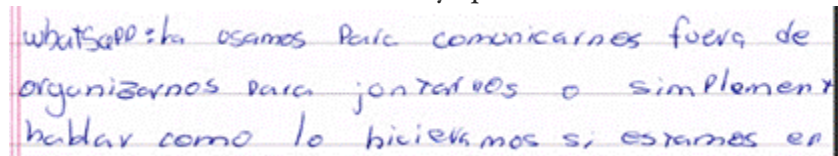 whatsapp: la osamos para comonicarnos fuera de
organizarnos para jontarnos o simplement
hablar como lo hicieramos si estamos en